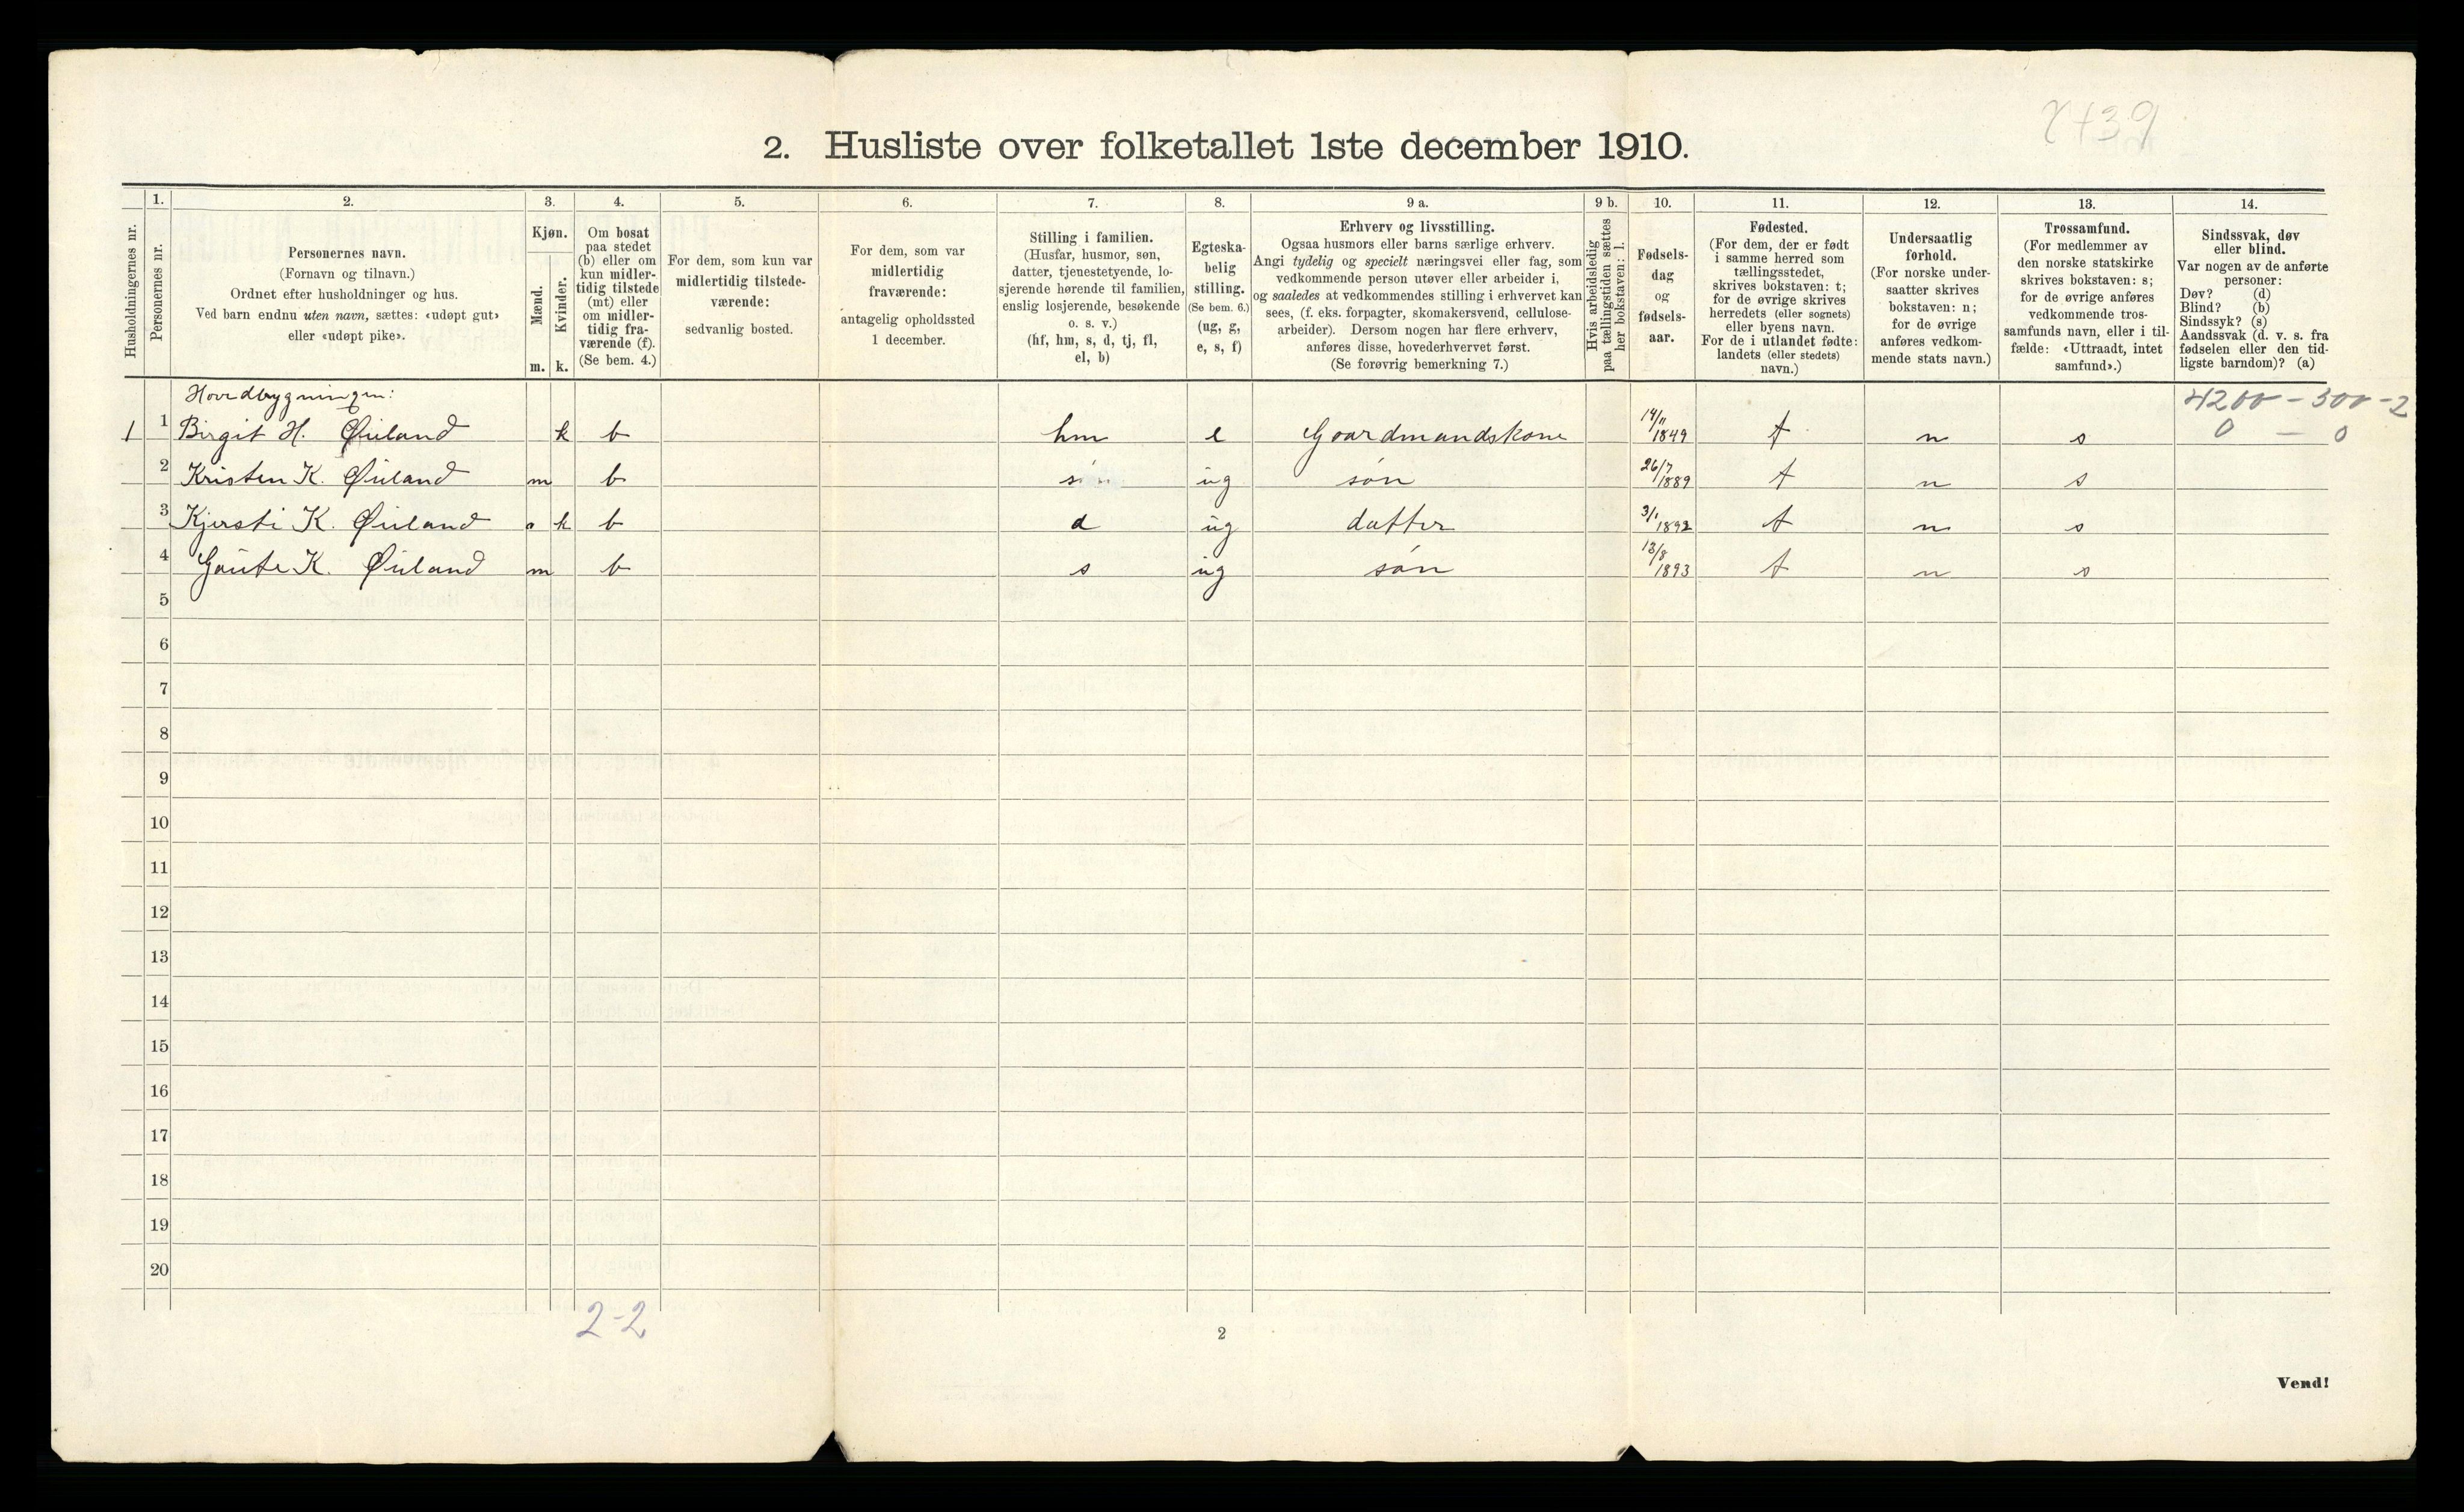 7+39
2. Husliste over folketallet 1ste december 1910.
Husholdningernes nr.
1.
Personernes nr.
2.
Personernes navn.
(Fornavn og tilnavn.)
Ordnet efter husholdninger og hus.
Ved barn endnu uten navn, sættes: «udøpt gut»
eller «udøpt pike».
3.
Kjøn.
Mænd.
Kvinder.
m. k.
4.
Om bosat
paa stedet
(b) eller om
kun midler-
tidig tilstede
(mt) eller
om midler-
tidig fra-
værende (f).
(Se bem. 4.)
5.
For dem, som kun var
midlertidig tilstede-
værende:
sedvanlig bosted.
6.
For dem, som var
midlertidig
fraværende:
antagelig opholdssted
1 december.
7.
Stilling i familien.
(Husfar, husmor, søn,
datter, tjenestetyende, lo-
sjerende hørende til familien,
enslig losjerende, besøkende
o. s. v.)
(hf, hm, s, d, tj, fl,
el, b)
8.
Egteska-
belig
stilling.
(Se bem. 6.)
(ug, g,
e, s, f)
9 a.
Erhverv og livsstilling.
Ogsaa husmors eller barns særlige erhverv.
Angi tydelig og specielt næringsvei eller fag, som
vedkommende person utøver eller arbeider i,
og saaledes at vedkommendes stilling i erhvervet kan
sees, (f. eks. forpagter, skomakersvend, cellulose-
arbeider). Dersom nogen har flere erhverv,
anføres disse, hovederhvervet først.
(Se forøvrig bemerkning 7.)
9 b.
Hvis arbeidsledig
paa tællingstiden sættes
her bokstaven: l.
10.
Fødsels-
dag
og
fødsels-
aar.
11.
Fødested.
(For dem, der er født
i samme herred som
tællingsstedet,
skrives bokstaven: t;
for de øvrige skrives
herredets (eller sognets)
eller byens navn.
For de i utlandet fødte:
landets (eller stedets)
navn.)
12.
Undersaatlig
forhold.
(For norske under-
saatter skrives
bokstaven: n;
for de øvrige
anføres vedkom-
mende stats navn.)
13.
Trossamfund.
(For medlemmer av
den norske statskirke
skrives bokstaven: s;
for de øvrige anføres
vedkommende tros-
samfunds navn, eller i til-
fælde: «Uttraadt, intet
samfund».)
14.
Sindssvak, døv
eller blind.
Var nogen av de anførte
personer:
Døv? (d)
Blind? (b)
Sindssyk? (s)
Aandssvak (d. v. s. fra
fødselen eller den tid-
ligste barndom)? (a)
Hovedbygningen: 4200 - 300 - 2
1 1 Birgit H. Øiland k b hm e Gaardmandskone 14/11 1849 t n s 0 - 0
2 Kristen K. Øiland m b s ug søn 26/7 1889 t n s
3 Kjersti K. Øiland k b d ug datter 3/1 1892 t n s
4 Gaute K. Øiland m b s ug søn 13/8 1893 t n s
5
6
7
8
9
10
11
12
13
14
15
16
17
18
19
20
2-2
2
Vend!